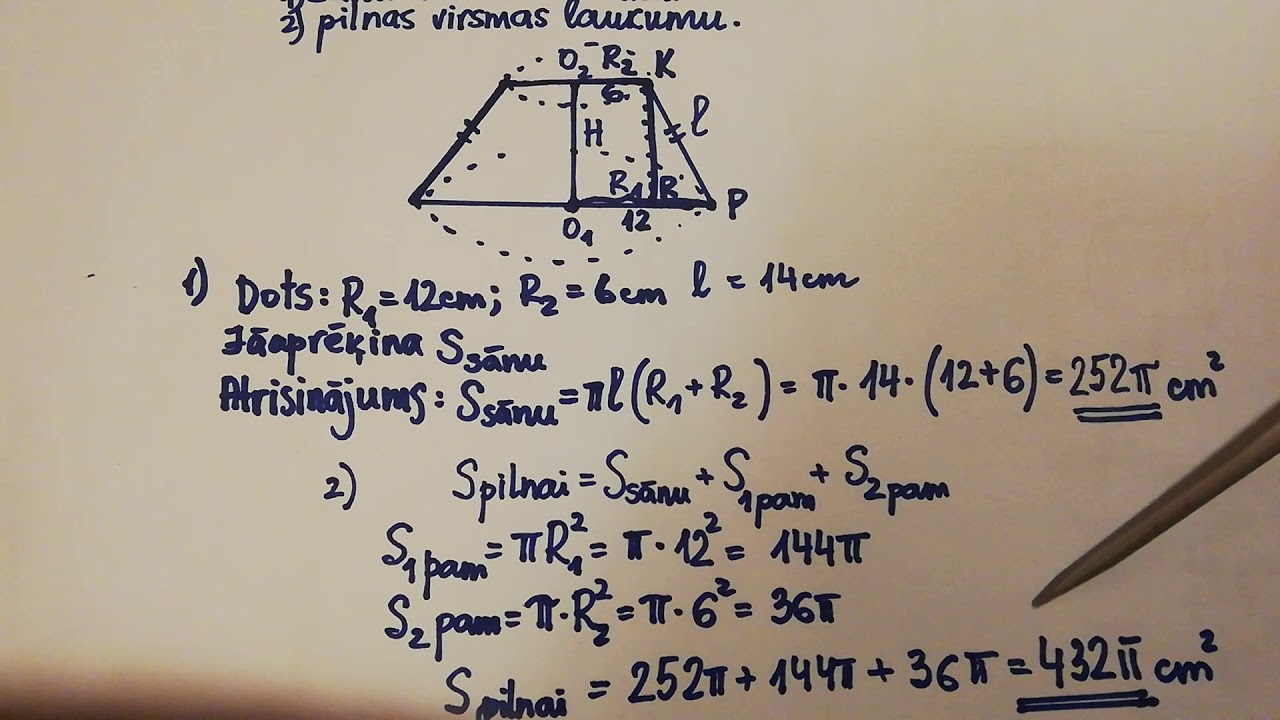 2) pilnas virsmas laukumu.
O₂ R₂ K
6
H l
R₁ R P
12
O₁
1) Dots: R₁ = 12cm; R₂ = 6cm l = 14cm
Jāaprēķina Sₛānu
Atrisinājums: Sₛānu = πl(R₁ + R₂) = π · 14 · (12+6) = 252π cm²
2) Spilnai = Sₛānu + S₁pam + S₂pam
S₁pam = πR₁² = π · 12² = 144π
S₂pam = π · R₂² = π · 6² = 36π
Spilnai = 252π + 144π + 36π = 432π cm²